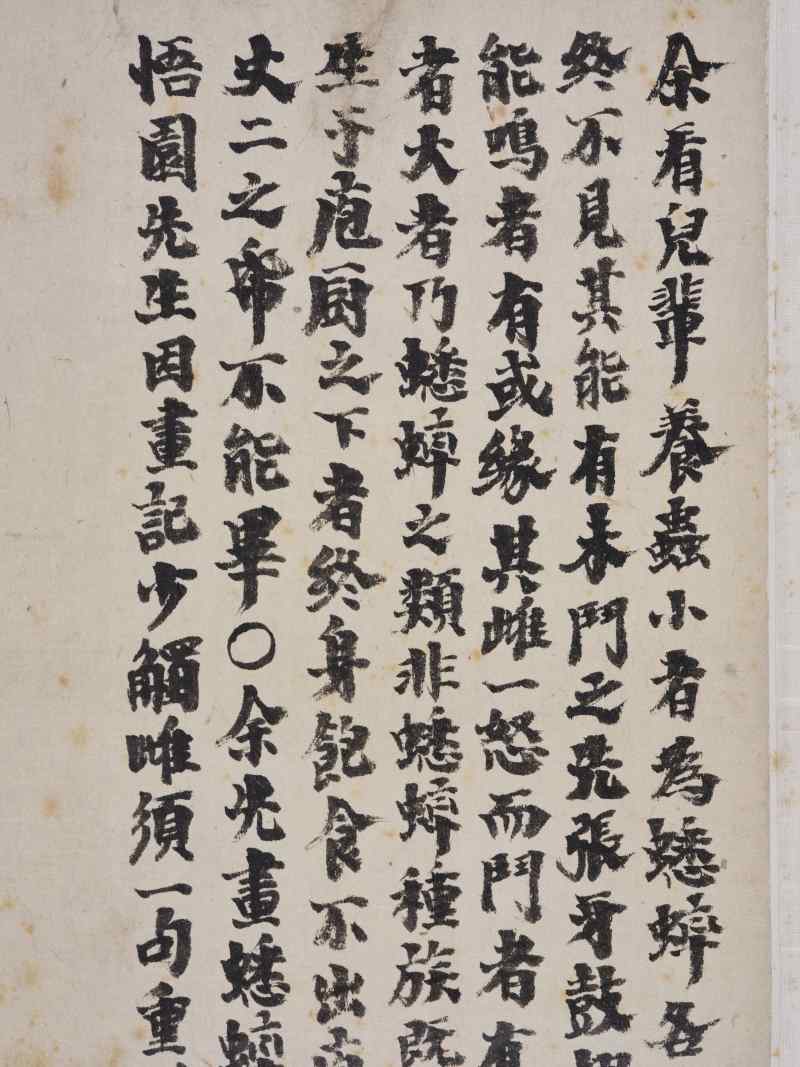 余看兒輩養蟲小者為蟋蟀各
終不見其能有未鬥之先張牙鼓
能鳴者有或緣其雌一怒而鬥者有
者大者乃蟋蟀之類非蟋蟀種族既
生于庖厨之下者終身飽食不出
丈二之希不能畢〇余先畫蟋蟀
悟園先生因畫記少觸雌須一句重